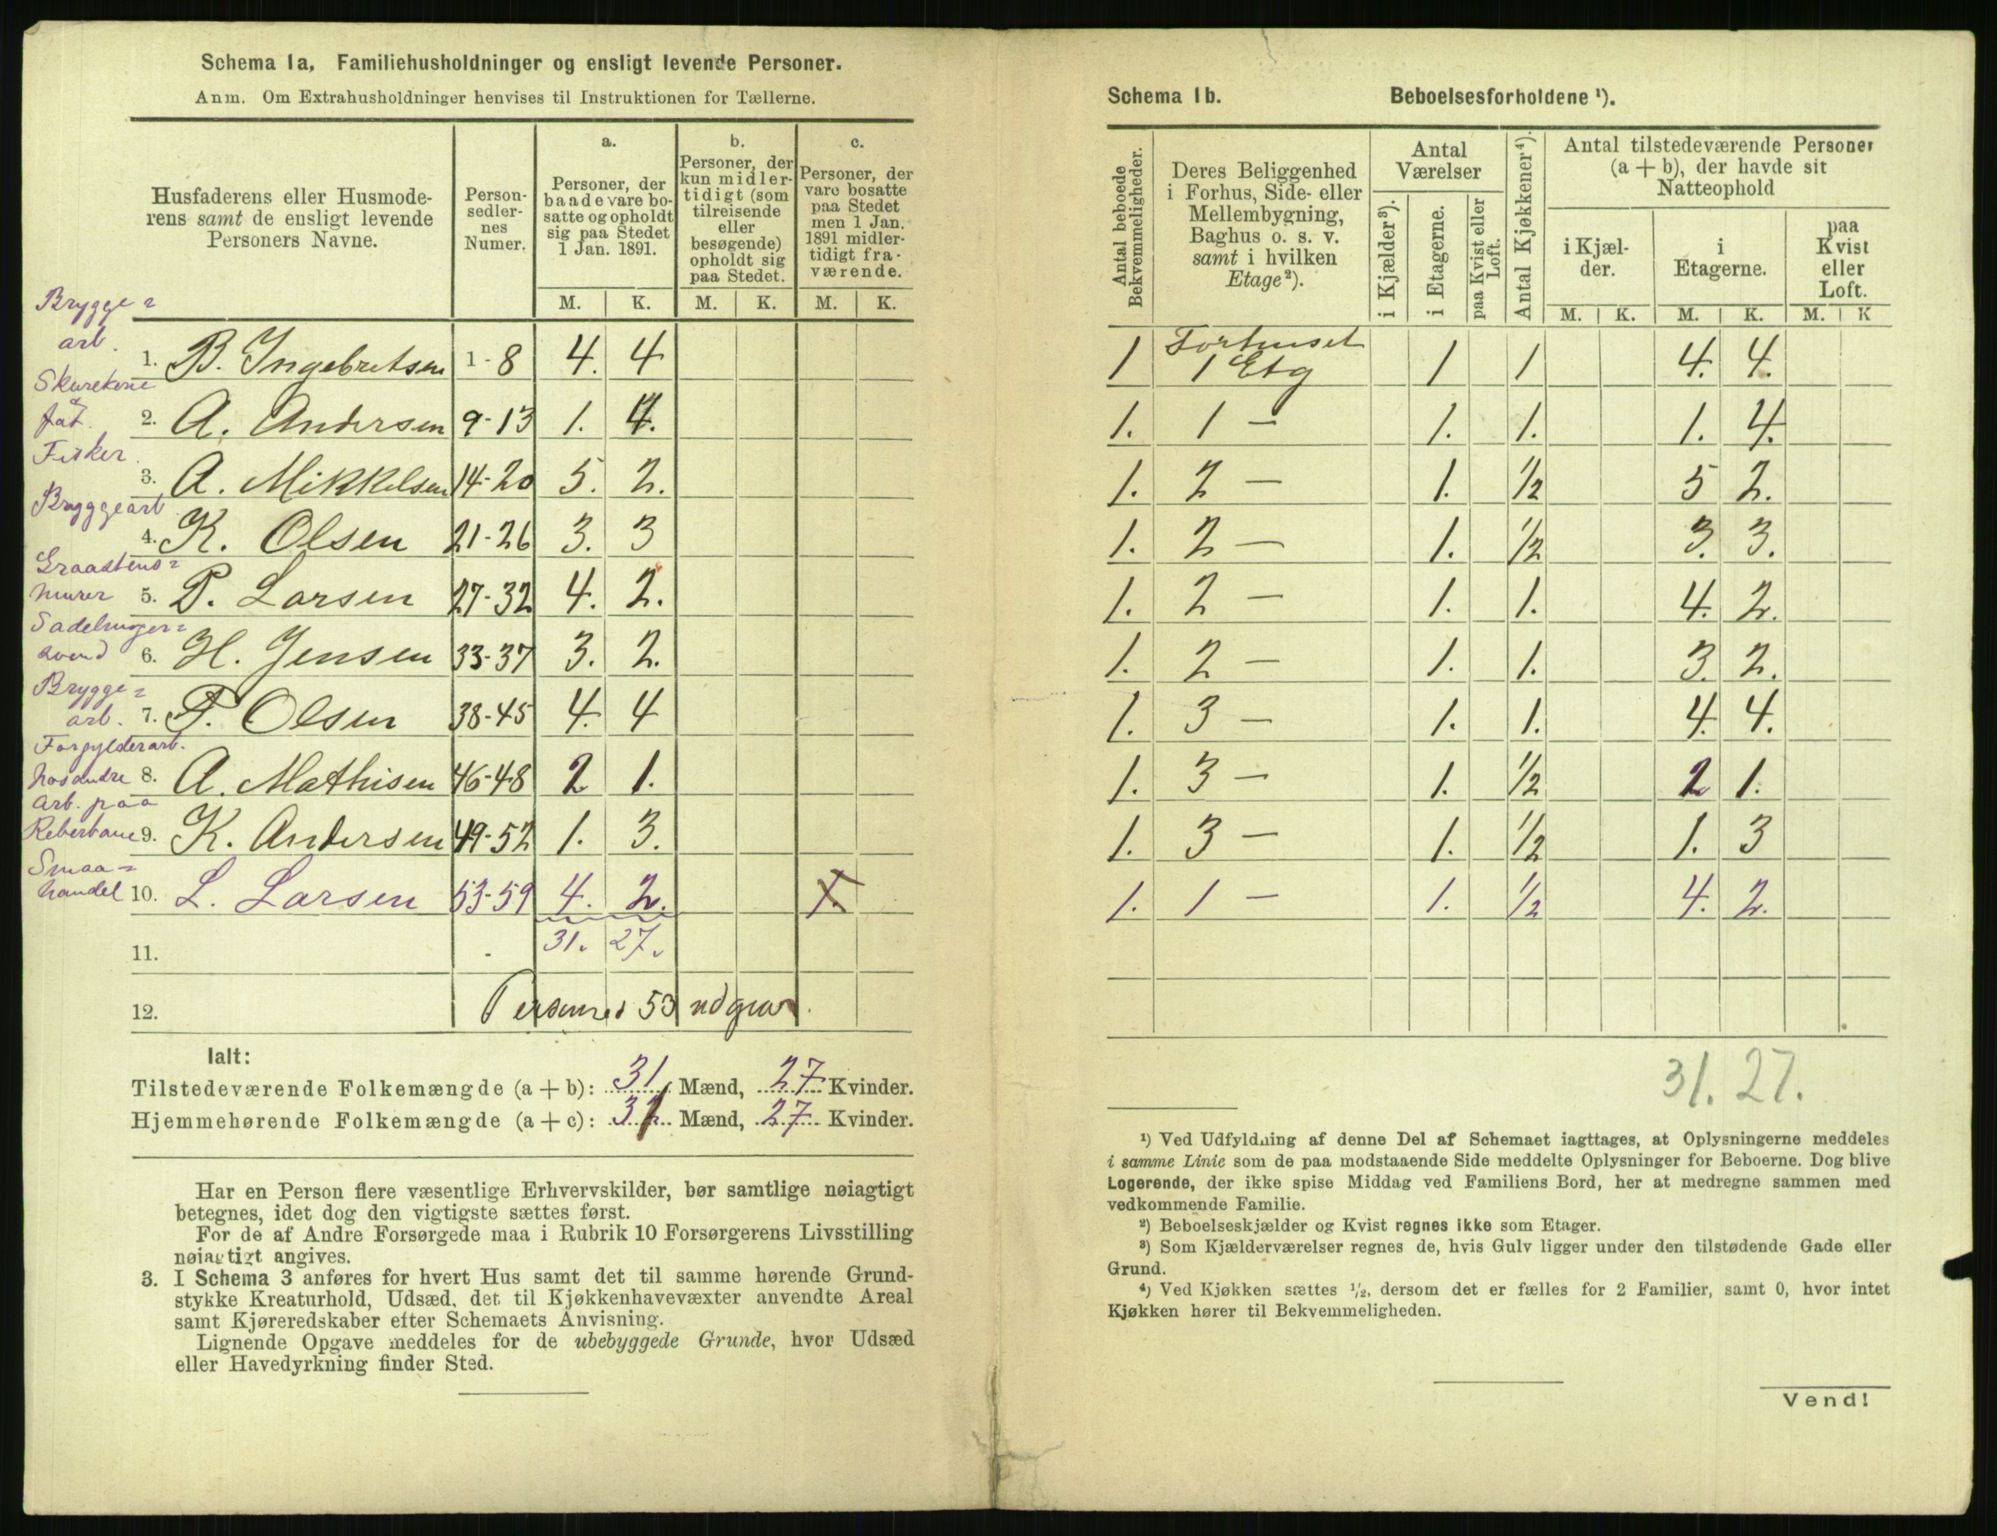 Schema 1a, Familiehusholdninger og ensligt levende Personer.
Anm. Om Extrahusholdninger henvises til Instruktionen for Tællerne.
Husfaderens eller Husmoderens samt de ensligt levende Personers Navne.
Personsedlernes Numer.
a. Personer, der baade vare bosatte og opholdt sig paa Stedet 1 Jan. 1891.
b. Personer, der kun midlertidigt (som tilreisende eller besøgende) opholdt sig paa Stedet.
c. Personer, der vare bosatte paa Stedet men 1 Jan. 1891 midlertidigt fraværende.
M. K. M. K. M. K.
Brygge=
arb.
1. B. Ingebretsen 1-8 4. 4
Skurekone
2. A. Andersen 9-13 1. 4.
Fisker
3. A. Mikkelsen 14-20 5. 2.
Bryggearb
4. K. Olsen 21-26 3. 3
Graastens=
murer 5. P. Larsen 27-32 4. 2.
Sadelmager=
svend 6. H. Jensen 33-37 3. 2.
Brygge=
arb. 7. P. Olsen 38-45 4. 4
Forgylderarb.
hos andre 8. A. Mathisen 46-48 2 1.
arb. paa
Reberbane 9. K. Andersen 49-52 1. 3.
Smaa=
handel 10. L. Larsen 53-59 4. 2. 1.
11. 31. 27.
12. Personsed 53 udgaar.
Ialt:
Tilstedeværende Folkemængde (a + b): 31 Mænd, 27 Kvinder.
Hjemmehørende Folkemængde (a + c): 31 Mænd, 27 Kvinder.
Har en Person flere væsentlige Erhvervskilder, bør samtlige nøiagtigt
betegnes, idet dog den vigtigste sættes først.
For de af Andre Forsørgede maa i Rubrik 10 Forsørgerens Livsstilling
nøiagtigt angives.
3. I Schema 3 anføres for hvert Hus samt det til samme hørende Grund-
stykke Kreaturhold, Udsæd, det til Kjøkkenhavevæxter anvendte Areal
samt Kjøreredskaber efter Schemaets Anvisning.
Lignende Opgave meddeles for de ubebyggede Grunde, hvor Udsæd
eller Havedyrkning finder Sted.
Schema 1b. Beboelsesforholdene ¹).
Antal beboede Bekvemmeligheder.
Deres Beliggenhed i Forhus, Side- eller Mellembygning, Baghus o. s. v. samt i hvilken Etage²).
Antal Værelser
i Kjælder³).
i Etagerne.
paa Kvist eller Loft.
Antal Kjøkkener⁴).
Antal tilstedeværende Personer (a + b), der havde sit Natteophold
i Kjælder.
i Etagerne.
paa Kvist eller Loft.
M. K. M. K. M. K
1 Forhuset 1 Etg 1 1 4. 4.
1. 1 — 1. 1. 1. 4.
1. 2 — 1. 1/2 5 2.
1. 2 — 1. 1/2 3. 3.
1. 2 — 1. 1. 4. 2.
1. 2 — 1. 1. 3. 2.
1. 3 — 1. 1. 4. 4.
1. 3 — 1. 1/2 2 1.
1. 3 — 1. 1/2 1. 3
1. 1 — 1. 1/2 4. 2.
31. 27.
¹) Ved Udfyldning af denne Del af Schemaet iagttages, at Oplysningerne meddeles
i samme Linie som de paa modstaaende Side meddelte Oplysninger for Beboerne. Dog blive
Logerende, der ikke spise Middag ved Familiens Bord, her at medregne sammen med
vedkommende Familie.
²) Beboelseskjælder og Kvist regnes ikke som Etager.
³) Som Kjælderværelser regnes de, hvis Gulv ligger under den tilstødende Gade eller
Grund.
⁴) Ved Kjøkken sættes ¹/₂, dersom det er fælles for 2 Familier, samt 0, hvor intet
Kjøkken hører til Bekvemmeligheden.
Vend!